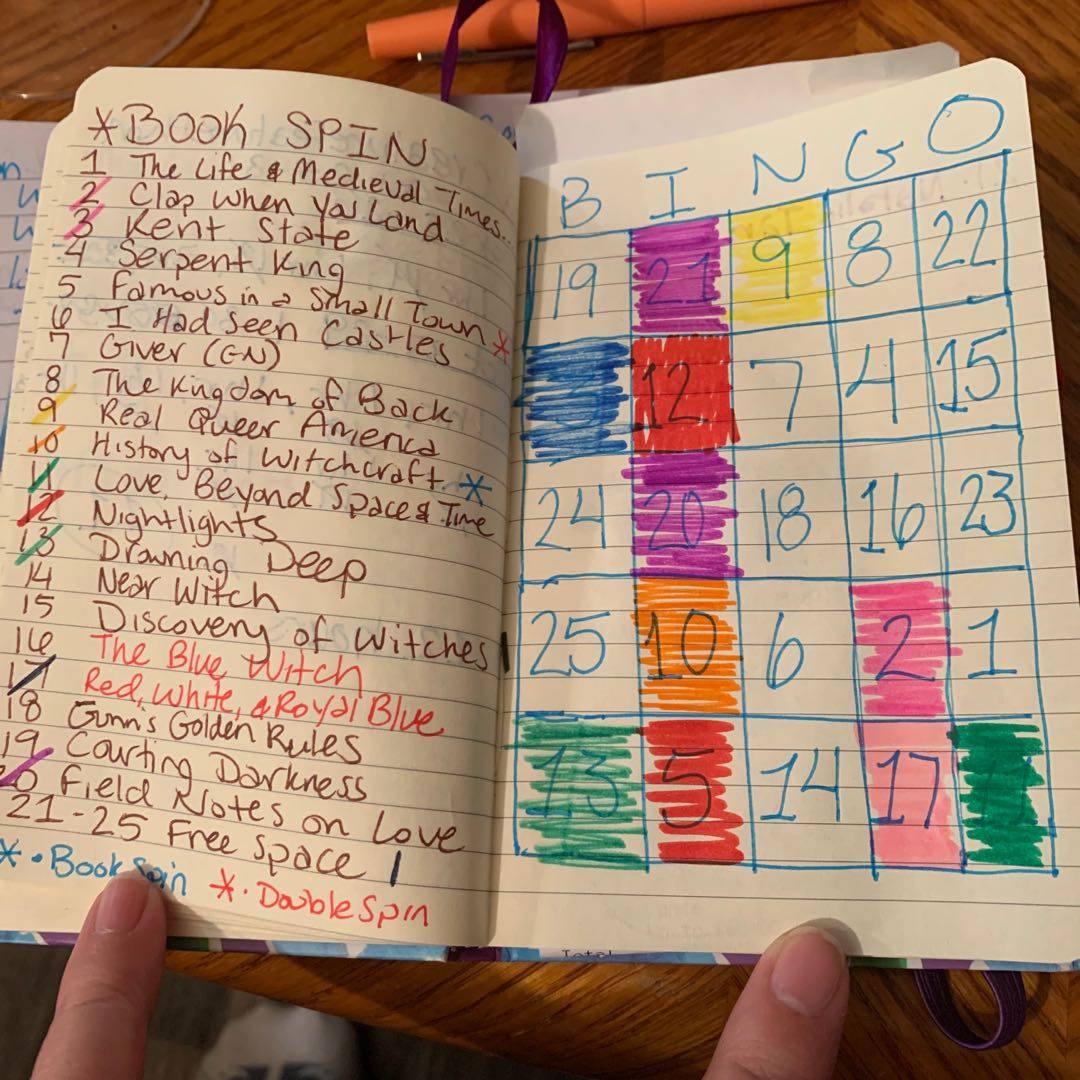 *BOOK SPIN
1 The Life & Medieval Times..
2 Clap When You Land
3 Kent State
4 Serpent King
5 Famous in a Small Town *
6 I Had Seen Castles
7 Giver (GN)
8 The Kingdom of Back
9 Real Queer America
10 History of Witchcraft *
11 Love Beyond Space & Time
12 Nightlights
13 Drowning Deep
14 Near Witch
15 Discovery of Witches
16 The Blue Witch
17 Red, White, & Royal Blue
18 Gunn's Golden Rules
19 Courting Darkness
20 Field Notes on Love
21-25 Free Space 1
* • Book Spin * • Double Spin
B I N G O
19 21 9 8 22
12 7 4 15
24 20 18 16 23
25 10 6 2 1
13 5 14 17 11